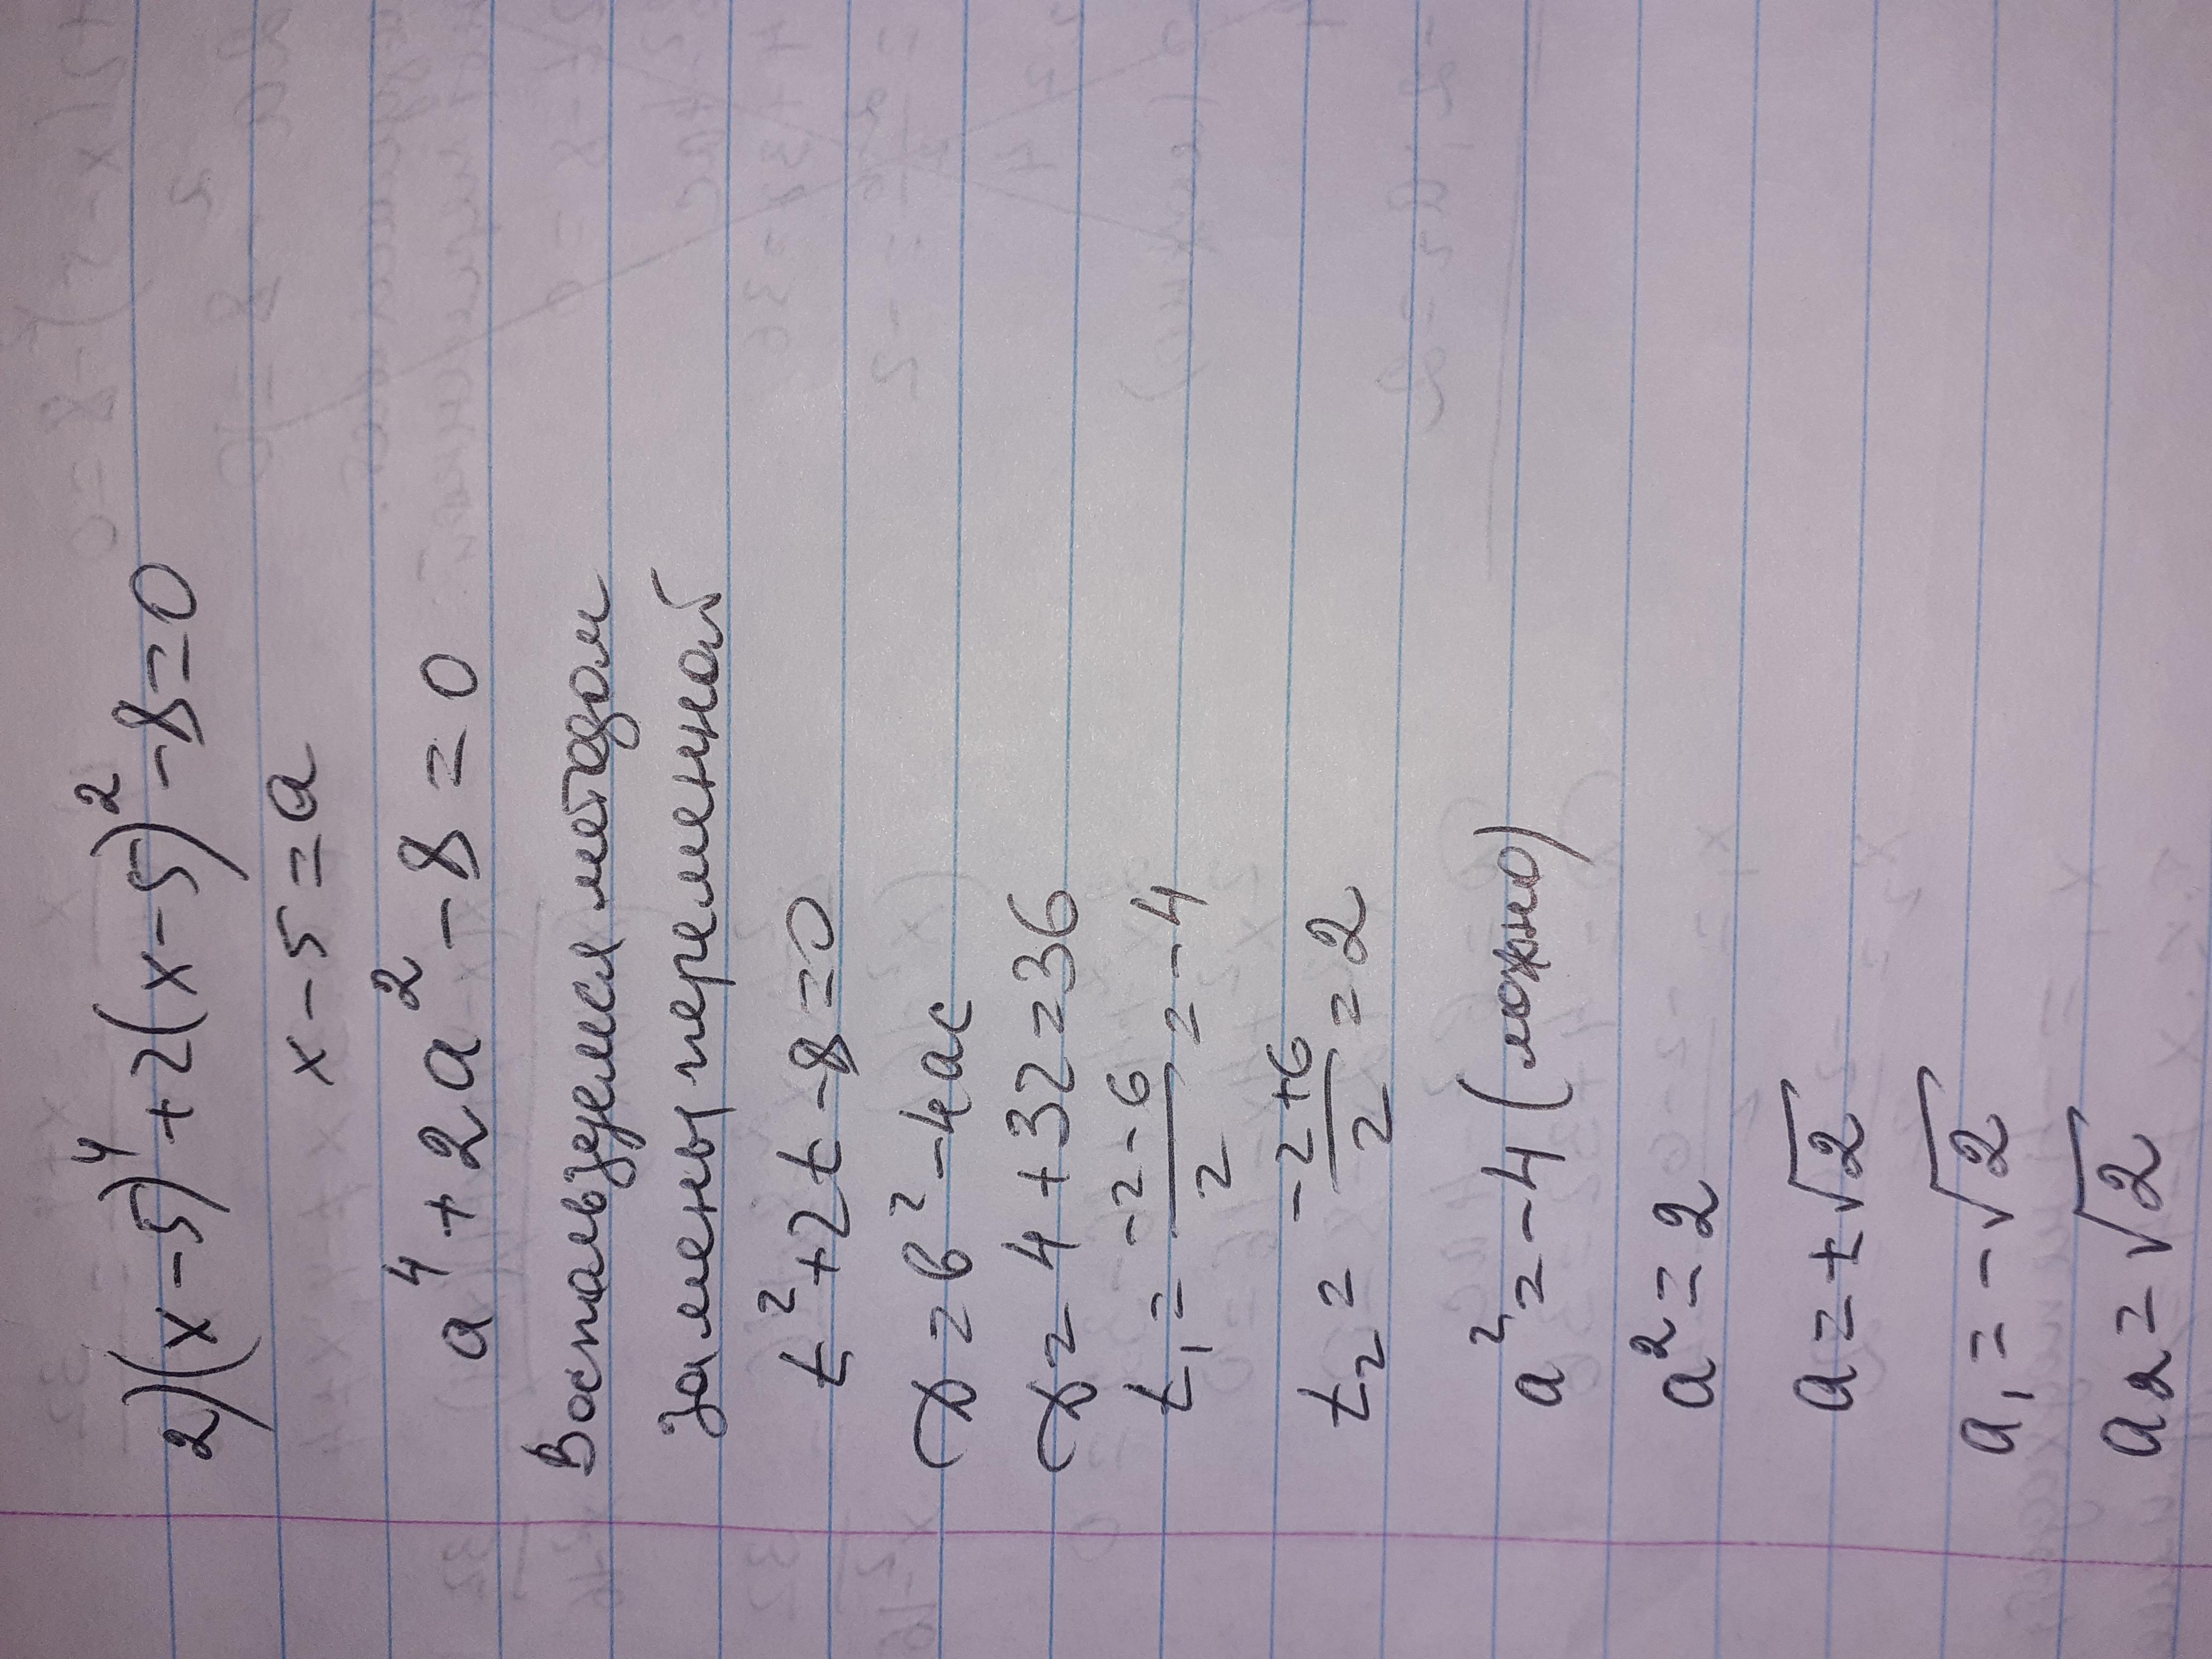 2) (x-5)⁴+2(x-5)²-8=0
x-5=a
a⁴+2a²-8=0
Воспользуемся методом
замены переменной
t²+2t-8=0
D=b²-4ac
D=4+32=36
t₁=(-2-6)/2=-4
t₂=(-2+6)/2=2
a²=-4 (ложно)
a²=2
a=±√2
a₁=-√2
a₂=√2